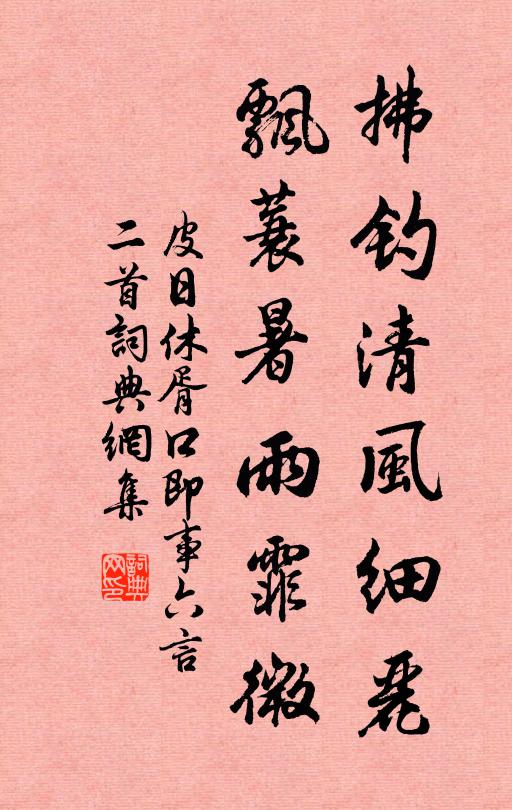 拂钓清風細麗
飄蓑暑雨霏微
皮日休胥口即事六言
二首詞典網集
詞典网印